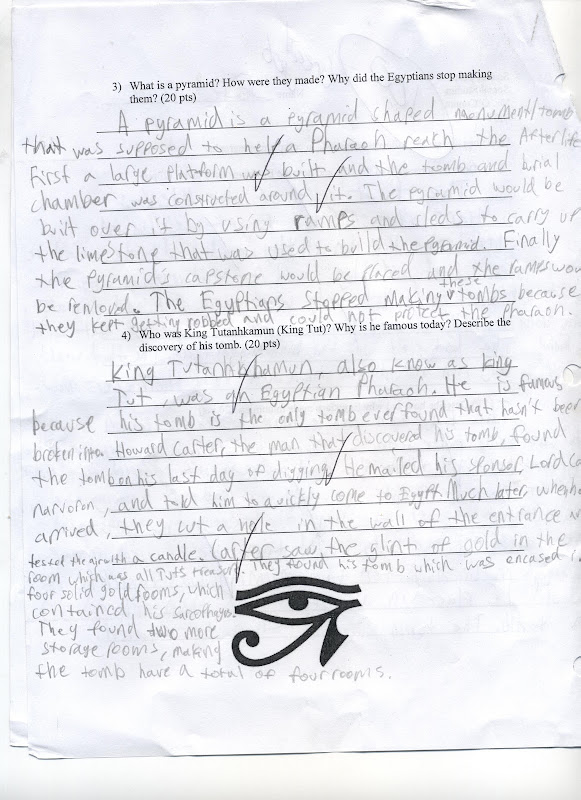 3) What is a pyramid? How were they made? Why did the Egyptians stop making
them? (20 pts)
A pyramid is a pyramid shaped monument/tomb
that was supposed to help a Pharaoh reach the Afterlife
First a large platform was built and the tomb and burial
chamber was constructed around it. The pyramid would be
built over it by using ramps and sleds to carry up
the limestone that was used to build the pyramid. Finally
the pyramid's capstone would be placed and the ramps wou
be removed. The Egyptians stopped making these tombs because
they kept getting robbed and could not protect the Pharaoh.
4) Who was King Tutanhkamun (King Tut)? Why is he famous today? Describe the
discovery of his tomb. (20 pts)
King Tutankhamun, also know as king
Tut, was an Egyptian Pharaoh. He is famous
because his tomb is the only tomb ever found that hasn't been
broken into. Howard Carter, the man that discovered his tomb, found
the tomb on his last day of digging. He mailed his sponser Lord Ca
narvoron, and told him to quickly come to Egypt. Much later, when he
arrived, they cut a hole in the wall of the entrance an
tested the air with a candle. Carter saw the glint of gold in the
room which was all Tuts treasure. They found his tomb which was encased i
four solid gold rooms, which
contained his sarcophagus.
They found two more
storage rooms, making
the tomb have a total of four rooms.